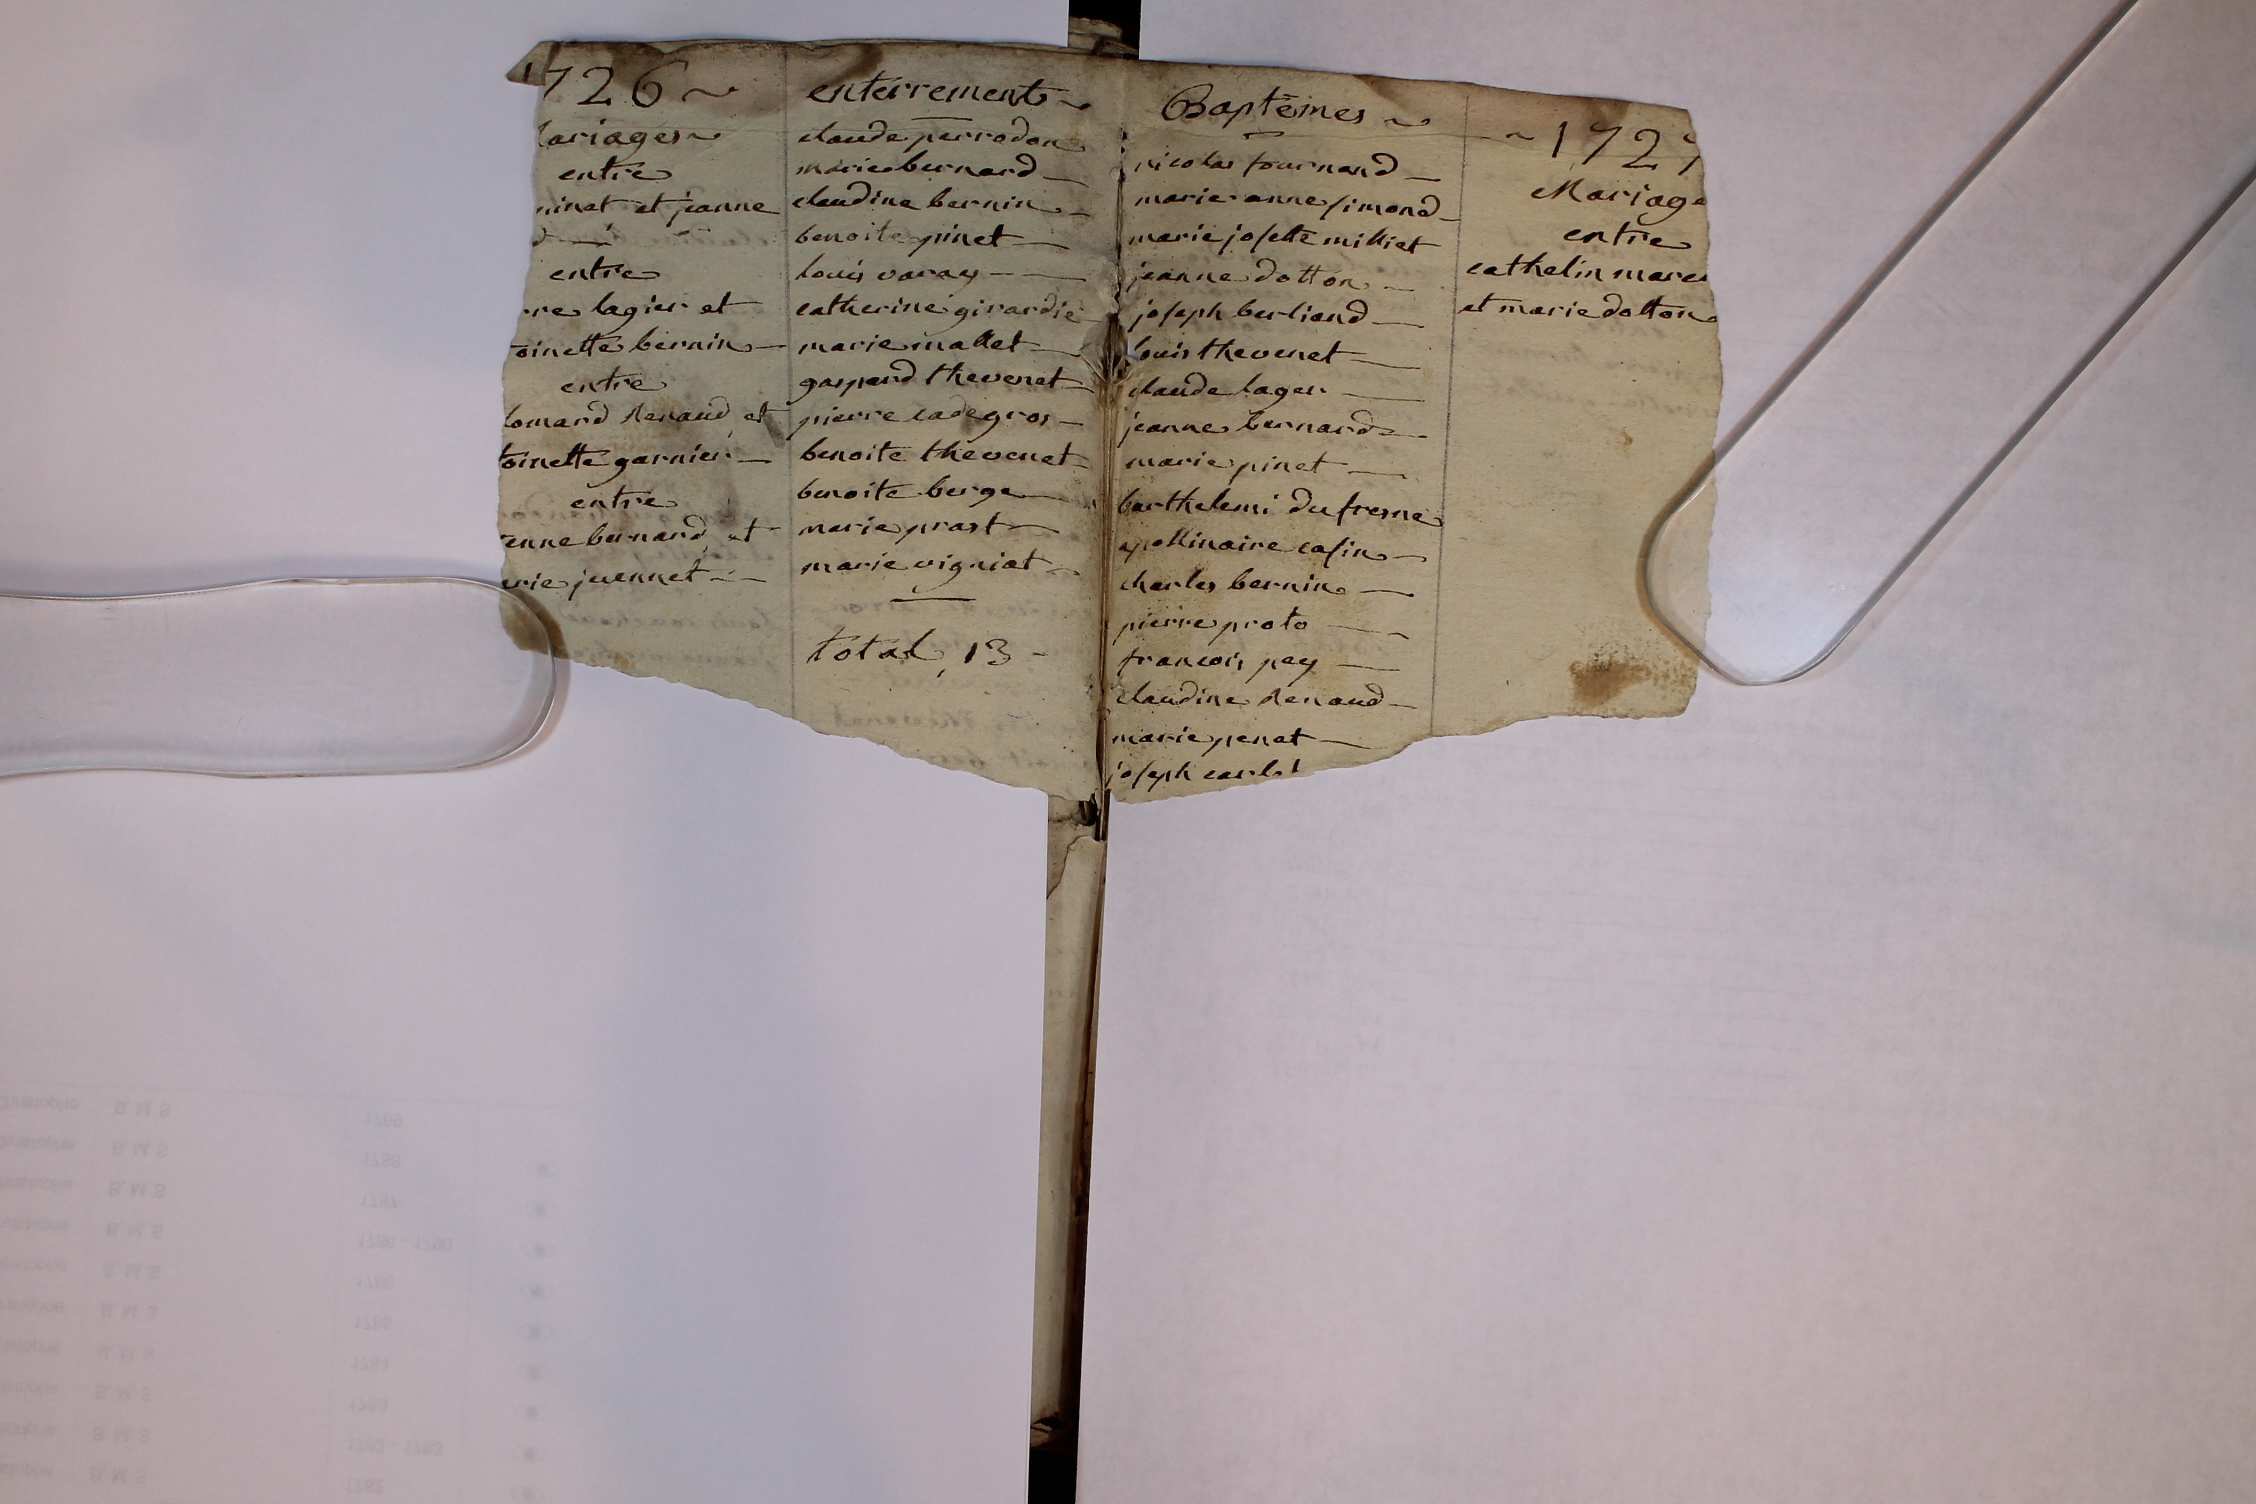 1726
enterrements
Mariages
entre
inet et jeanne
entre
re lagier et
toinette bernin
entre
lomard Renaud et
toinette garnier
entre
enne bernard et
arie juennet
claude perrodon
marie bernard
claudine bernin
benoite pinet
louis varay
catherine girardie
marie mallet
gaspard thevenet
pierre cadegros
benoite thevenet
benoite berge
marie prast
marie vigniat
total, 13
Baptêmes
nicolas fournand
marie anne simond
marie josette milliet
jeanne dotton
joseph berliand
louis thevenet
claude lager
jeanne bernard
marie pinet
barthelemi dufresne
apollinaire casin
charles bernin
pierre proto
francois pey
claudine Renaud
marie penet
joseph
172
Mariage
entre
cathelin
et marie dotton